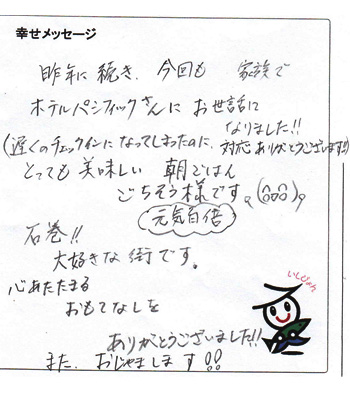 幸せメッセージ
昨年に続き、今回も 家族で
ホテルパシフィックさんに お世話に
なりました!!
(遅くのチェックインになってしまったのに、対応ありがとうございます!!)
とっても美味しい 朝ごはん
ごちそう様です。
元気百倍
石巻!!
大好きな街です。
心あたたまる
おもてなしを
ありがとうございました!!
また、おじゃまします!!